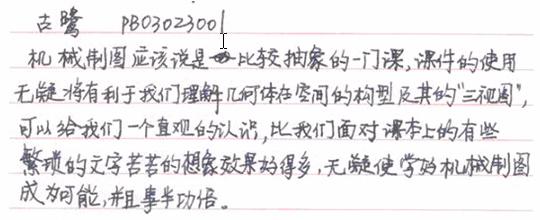 古鹭 PB03023001
机械制图应该说是比较抽象的一门课,课件的使用
无疑将有利于我们理解几何体在空间的构型及其的"三视图",
可以给我们一个直观的认识,比我们面对课本上的有些
繁琐的文字苦苦的想象效果好得多,无疑使学好机械制图
成为可能,并且事半功倍。